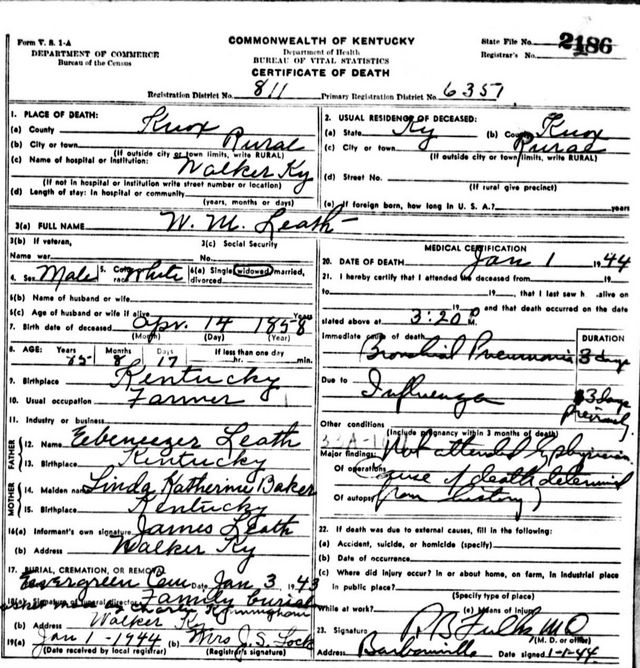 Form V. S. 1-A
DEPARTMENT OF COMMERCE
Bureau of the Census
COMMONWEALTH OF KENTUCKY
Department of Health
BUREAU OF VITAL STATISTICS
CERTIFICATE OF DEATH
State File No. 2186
Registrar's No.
Registration District No. 811 Primary Registration District No. 6351
1. PLACE OF DEATH:
(a) County Knox
(b) City or town Rural
(If outside city or town limits, write RURAL)
(c) Name of hospital or institution: Walker Ky
(If not in hospital or institution write street number or location)
(d) Length of stay: In hospital or community
(years, months or days)
2. USUAL RESIDENCE OF DECEASED:
(a) State Ky (b) County Knox
(c) City or town Rural
(If outside city or town limits, write RURAL)
(d) Street No.
(If rural give precinct)
(e) If foreign born, how long in U. S. A.? years
3(a) FULL NAME W. M. Leath
3(b) If veteran,
Name war
3(c) Social Security
No.
4. Sex Male 5. Color White 6(a) Single widowed married, divorced
6(b) Name of husband or wife
6(c) Age of husband or wife if alive Years
7. Birth date of deceased Apr. 14 1858
(Month) (Day) (Year)
8. AGE: Years Months Days If less than one day
85 8 17 hr. min.
9. Birthplace Kentucky
10. Usual occupation Farmer
11. Industry or business
FATHER
12. Name Ebeneezer Leath
13. Birthplace Kentucky
MOTHER
14. Maiden name Linda Katherine Baker
15. Birthplace Kentucky
16(a) Informant's own signature James Leath
(b) Address Walker Ky
17. BURIAL, CREMATION, OR REMOVAL
Evergreen Cem Date Jan 3 1943
18(a) Signature of funeral director Family burial
(b) Address Walker Ky
19(a) Jan 1-1944 (b) Mrs J. S. Lock
(Date received by local registrar) (Registrar's signature)
MEDICAL CERTIFICATION
20. DATE OF DEATH Jan 1 1944
21. I hereby certify that I attended the deceased from , 19
to , 19 , that I last saw h alive on
, 19 and that death occurred on the date
stated above at 3:20 P M.
Immediate cause of death DURATION
Bronchial Pneumonia 3 days
Due to Influenza 3 days
previously
Other conditions
(Include pregnancy within 3 months of death)
Major findings: Not attended by physician
Of operations Cause of death determined
Of autopsy from history)
22. If death was due to external causes, fill in the following:
(a) Accident, suicide, or homicide (specify)
(b) Date of occurrence
(c) Where did injury occur? In or about home, on farm, in industrial place
in public place?
(Specify type of place)
While at work? (e) Means of injury
23. Signature P B Fulks M D
(M. D. or other)
Address Barbourville Date signed 1-1-44